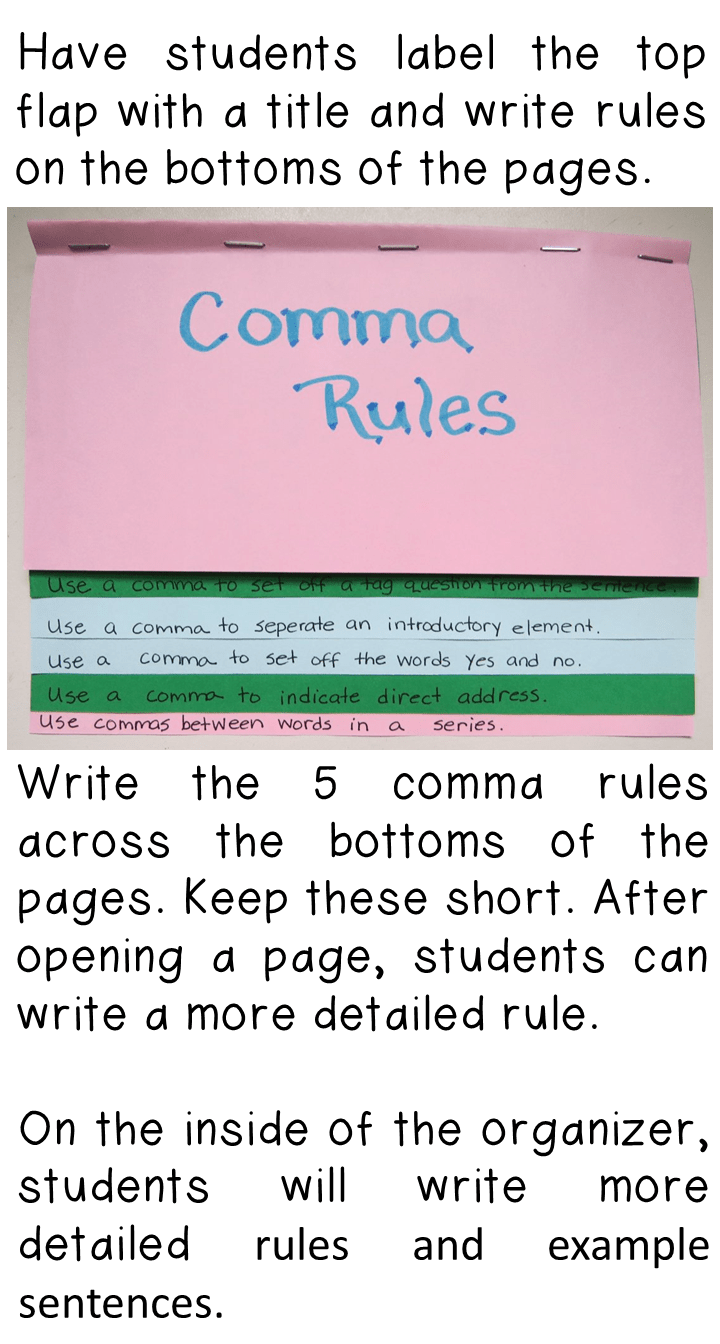 Have students label the top
flap with a title and write rules
on the bottoms of the pages.
Comma
Rules
Use a comma to set off a tag question from the sentence.
Use a comma to seperate an introductory element.
Use a comma to set off the words yes and no.
Use a comma to indicate direct address.
Use commas between words in a series.
Write the 5 comma rules
across the bottoms of the
pages. Keep these short. After
opening a page, students can
write a more detailed rule.
On the inside of the organizer,
students will write more
detailed rules and example
sentences.